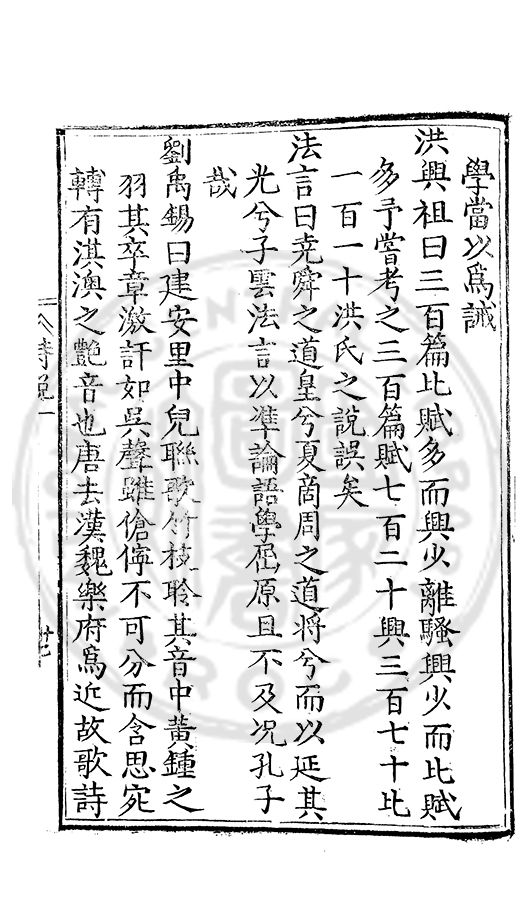 學當以爲誡
洪興祖曰三百篇比賦多而興少離騷興少而比賦
多予嘗考之三百篇賦七百二十興三百七十比
一百一十洪氏之說誤矣
法言曰堯舜之道皇兮夏商周之道將兮而以延其
光兮子雲法言以準論語學屈原且不及况孔子
哉
劉禹錫曰建安里中兒聯歌竹枝聆其音中黃鍾之
羽其卒章激訐如吳聲雖傖儜不可分而含思宛
轉有淇澳之艷音也唐去漢魏樂府爲近故歌詩
詩說一